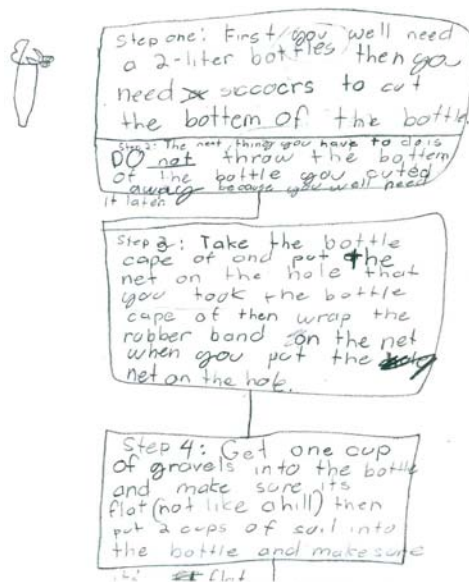 Step one: First you well need
a 2-liter bottles then you
need sccoers to cut
the bottem of the bottle.
Step 2: The next thing you have to do is
DO not throw the bottem
of the bottle you cuted
away because you well need
it later.
Step 3: Take the bottle
cape of and put the
net on the hole that
you took the bottle
cape of then wrap the
rubber band on the net
when you put the
net on the hole.
Step 4: Get one cup
of gravels into the bottle
and make sure its
flat (not like a hill) then
put 2 cups of soil into
the bottle and make sure
its flat